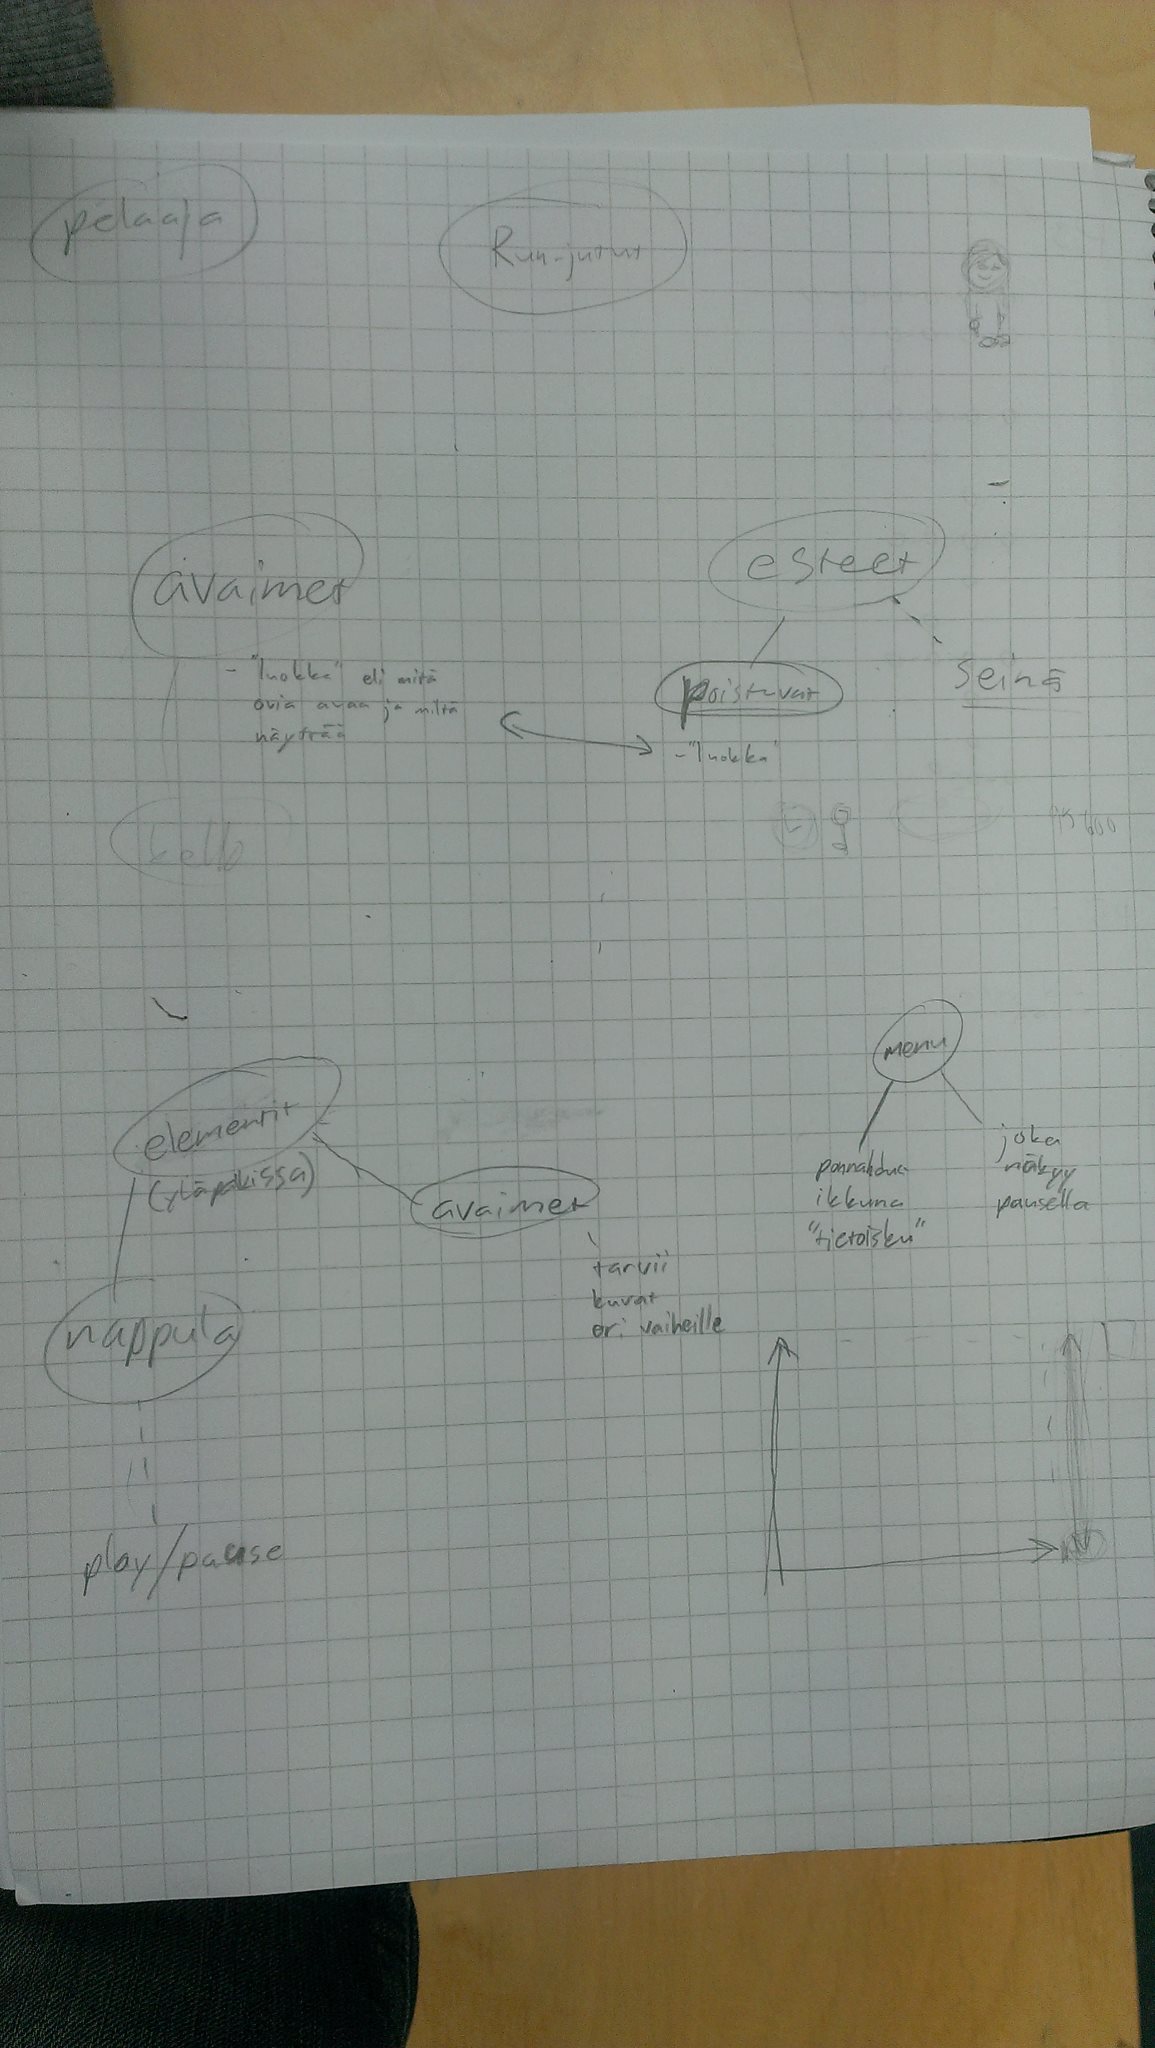 pelaaja
Run-jutut
avaimet
- "luokka" eli mitä
ovia avaa ja miltä
näyttää
esteet
poistuvat
- "luokka"
seinä
kello
elementit
(yläpalkissa)
avaimet
tarvii
kuvat
eri vaiheille
nappula
play/pause
menu
ponnahdus
ikkuna
"tietoisku"
joka
näkyy
pausella